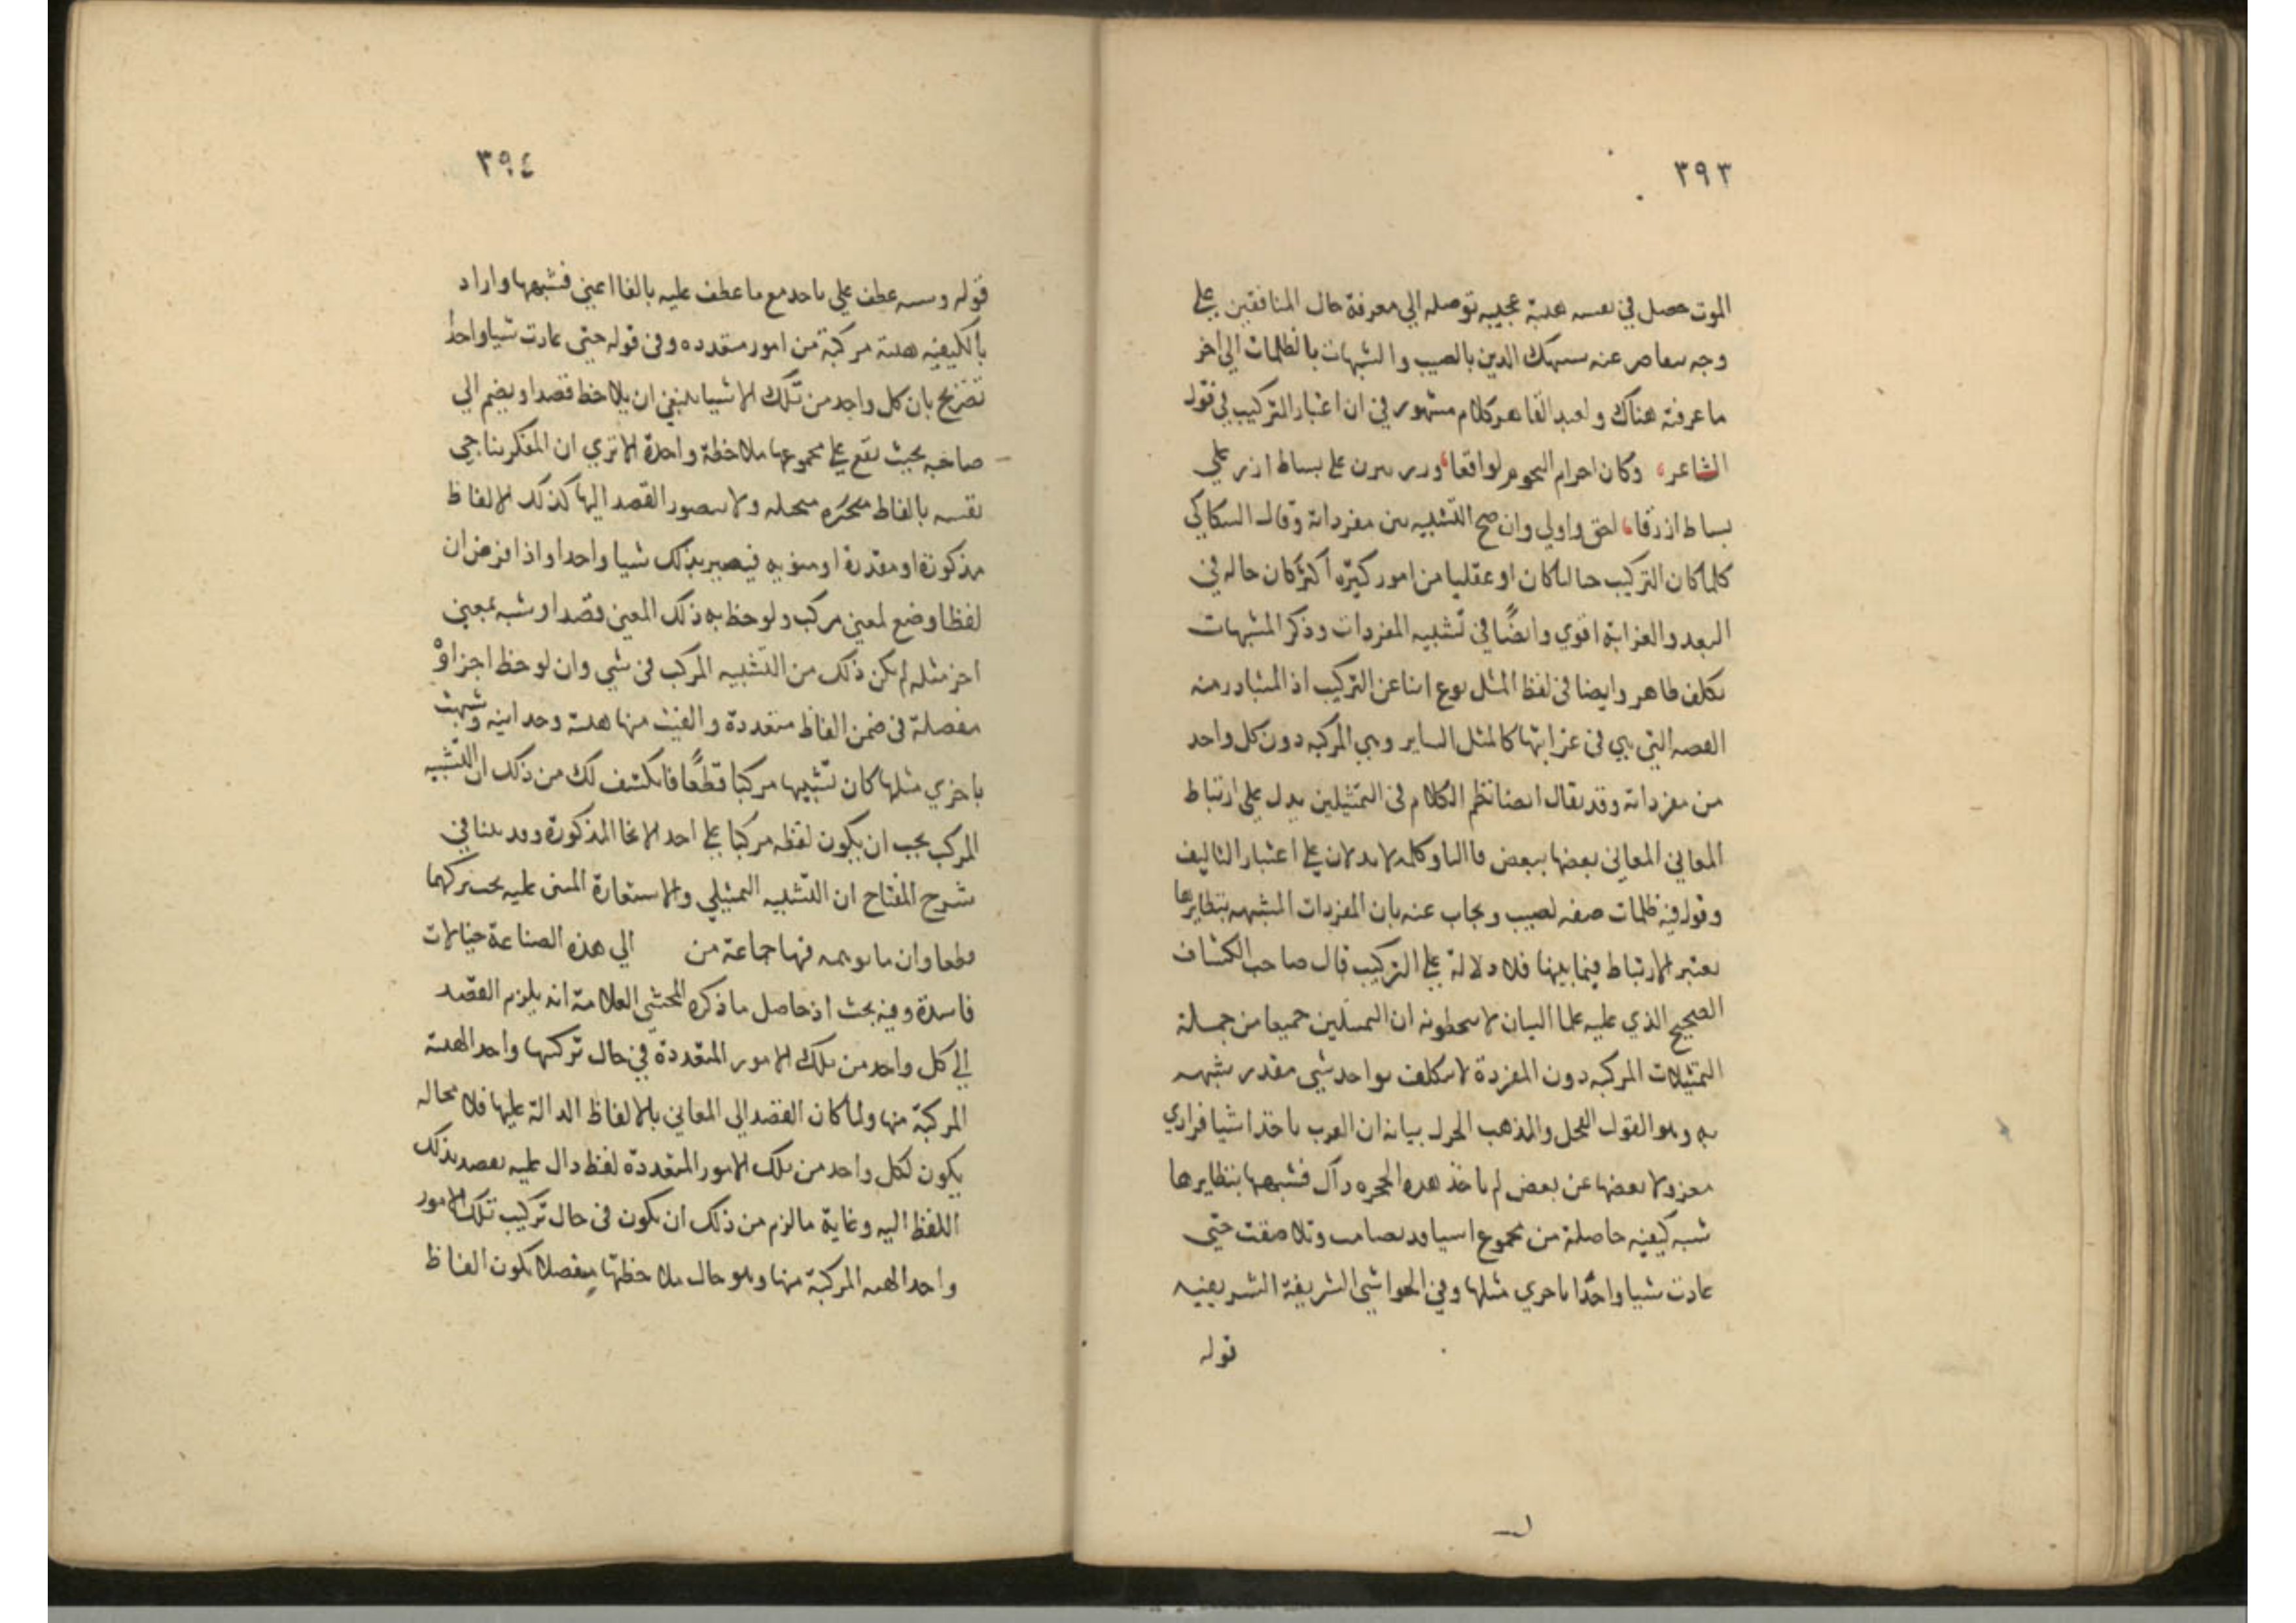 ٣٩٣
الموت حصل في نفسه هيئة عجيبه توصله الي معرفة حال المنافقين علي
وجه عنه الدين بالصيب والشبهات بالظلمات الي اخر
ما عرفته هناك ولعبد القاهر كلام مشهور في ان اعتبار التركيب في قول
الشاعر، وكان اجرام النجوم لوامعا، درر نثرن علي بساط ازرق علي
بساط ازرقا، احق واولي وان صح التشبيه بين مفرداته وقال السكاكي
كلما كان التركيب خياليا كان او عقليا من امور كثيره اكثر كان حاله في
البعد والغرابة اقوي وايضًا في تشبيه المفردات وذكر المشبهات
تكلف ظاهر وايضا في لفظ المثل نوع انبا عن التركيب اذ المتبادر منه
القصه التي هي في غرابتها كالمثل الساير وهي المركبه دون كل واحد
من مفرداته وقد يقال ايضا نظم الكلام في التمثيلين يدل علي ارتباط
المعاني المعاني بعضها ببعض فالباو كلمه لا يدلان علي اعتبار التاليف
وقوله فيه ظلمات صفه لصيب ويجاب عنه بان المفردات المشبهه بنظايرها
يعتبر الارتباط فيما بينها فلا دلالة علي التركيب قال صاحب الكشاف
الصحيح الذي عليه علما البيان لا يتخطونه ان التمثيلين جميعا من جملة
التمثيلات المركبه دون المفردة لا يتكلف بواحد شي مقدر شبهه
به وهو القول الفحل والمذهب الجزل بيانه ان العرب ياخذ اشيا فرادي
معزولا بعضها عن بعض لم ياخذ هذه الحجزه ذاك فشبهها بنظايرها
شبه كيفيه حاصلة من مجموع اشيا قد تضامت وتلاصقت حتي
عادت شيا واحدًا باخري مثلها وفي الحواشي الشريفة الشريفيه
قوله
٣٩٤
قوله وشبه عطف علي ياخذ مع ما عطف عليه بالفا اعني فشبهها واراد
بالكيفيه هيئة مركبة من امور متعدده وفي قوله حتي عادت شيا واحدا
تصريح بان كل واحد من تلك الاشيا ينبغي ان يلاحظ قصدا ويضم الي
صاحبه بحيث تقع علي مجموعها ملاحظة واحدة الا تري ان المفكر يناجي
نفسه بالفاظ متخيله ولا يتصور القصد اليها كذلك الا لفاظ
مذكورة او مقدرة او منويه فيصير بذلك شيا واحدا واذا افرض ان
لفظا وضع لمعني مركب ولوحظ به ذلك المعني قصدا وشبه بمعني
اخر مثله لم يكن ذلك من التشبيه المركب في شي وان لوحظ اجزاوْ
مفصلة في ضمن الفاظ متعددة والفيت منها هيئة وحدانيه وشبهت
باخري مثلها كان تشبيها مركبا قطعًا فانكشف لك من ذلك ان التشبيه
المركب يجب ان يكون لفظه مركبا علي احد الانحا المذكورة وقد بينا في
شرح المفتاح ان التشبيه التمثيلي والاستعارة المبني عليه يجب تركبهما
قطعا وان ما توهمه فيها جماعة من الي هذه الصناعة خيالات
فاسدة وفيه بحث اذ حاصل ما ذكره المحشي العلامة انه يلزم القصد
الي كل واحد من تلك الامور المتعددة في حال تركبها واحد الهيئة
المركبة منها ولما كان القصد الي المعاني بالالفاظ الدالة عليها فلا محاله
يكون لكل واحد من تلك الامور المتعددة لفظ دال عليه يقصد بذلك
اللفظ اليه وغاية ما لزم من ذلك ان يكون في حال تركيب تلك الامور
واحد الهيه المركبة منها وهو حال ملاحظتها مفصلا يكون الفاظ